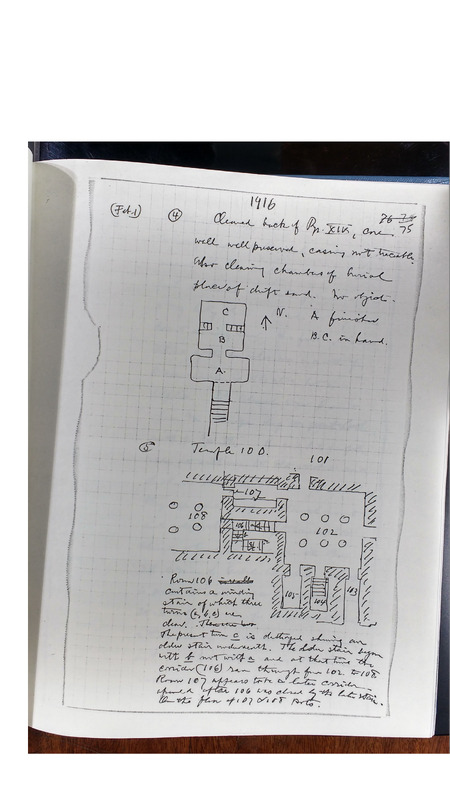 1916
(Feb. 1)
④ Cleaned back of Pyr. XIV, core
75
well well preserved, casing not traceable
Also cleaning chambers of burial
place of drift sand. No objects.
N.
A finished
B.C. in hand.
C
B
A.
⑤ Temple 100.
101
107
108
106
102
105
104
103
Room 106
contains a winding
stair of which three
turns (a, b, c) are
clear.
The present turn c is destroyed showing an
older stair underneath. The older stair began
with b not with a and at that time the
corridor (106) ran through from 102 to 108
Room 107 appears to be a later corridor
opened after 106 was closed by the later stair.
On the floor of 107 &108